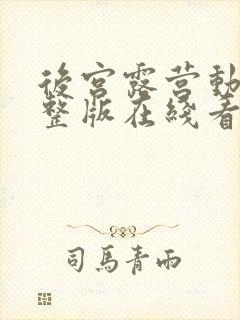 後宮露营動
整版在綫看
司馬青雨